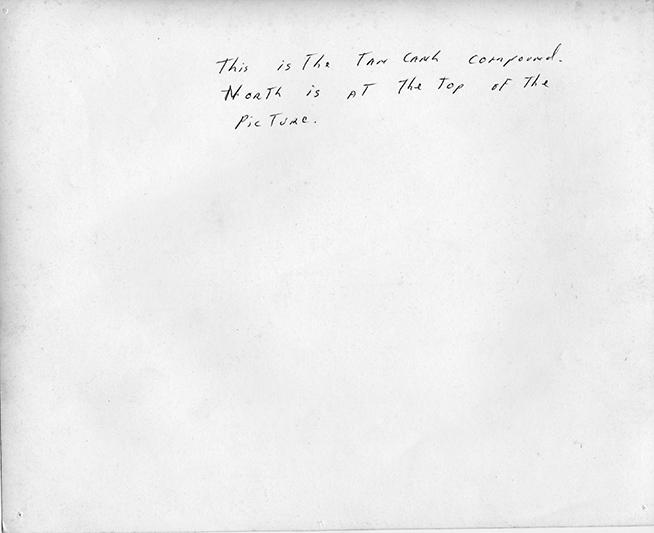 This is The TAN CANH compound.
NORTH is AT The Top of The
PicTure.